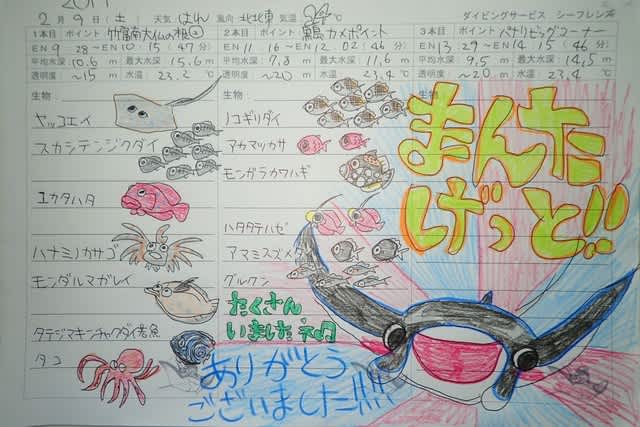 2月9日(土) 天気 はれ 風向 北北東 気温 24℃ ダイビングサービス シーフレンズ
1本目 ポイント 竹富南大仏の根
EN 9:28～10:15(47分)
平均水深 10.6m 最大水深 15.6m
透明度 ～15m 水温 23.2℃
2本目 ポイント 黒島カメポイント
EN 11:16～12:02(46分)
平均水深 7.8m 最大水深 11.6m
透明度 ～20m 水温 23.4℃
3本目 ポイント パナリビッグコーナー
EN 13:29～14:15(46分)
平均水深 9.5m 最大水深 14.5m
透明度 ～20m 水温 23.4℃
生物:
ヤッコエイ
スカシテンジクダイ
ユカタハタ
ハナミノカサゴ
モンダルマガレイ
タテジマキンチャクダイ若魚
タコ
生物:
ノコギリダイ
アカマツカサ
モンガラカワハギ
ハタタテハゼ
アマミスズメ
グルクン
たくさん
いました
生物:
まんた
げっと!!
ありがとう
ございました!!!!